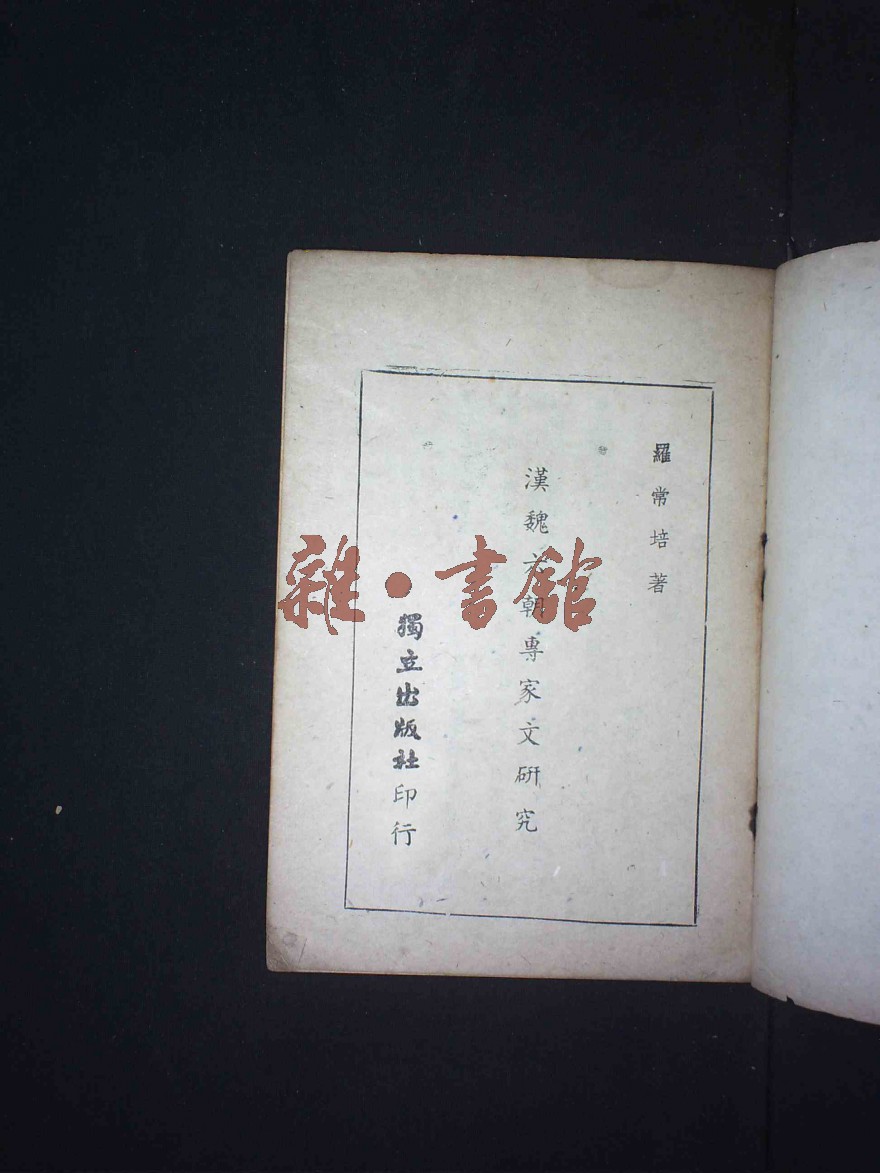 羅常培著
漢魏六朝專家文研究
獨立出版社印行
雜·書館